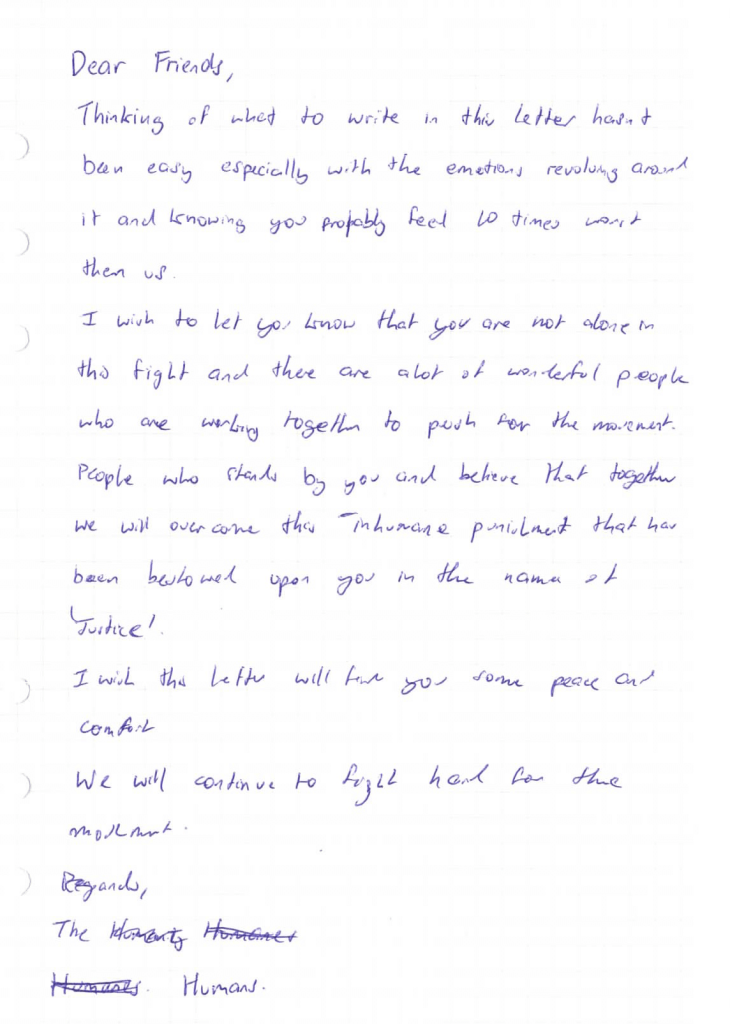 Dear Friends,
Thinking of what to write in this letter hasnt
been easy especially with the emotions revolving around
it and knowing you propably feel 10 times worst
then us.
I wish to let you know that you are not alone in
this fight and there are alot of wonderful people
who are working together to push for the movement.
People who stands by you and believe that together
we will overcome this inhumane punishment that has
been bestowed upon you in the name of
'Justice'.
I wish this letter will find you some peace and
comfort
We will continue to fight hard for the
movement.
Regards,
The
Humans.